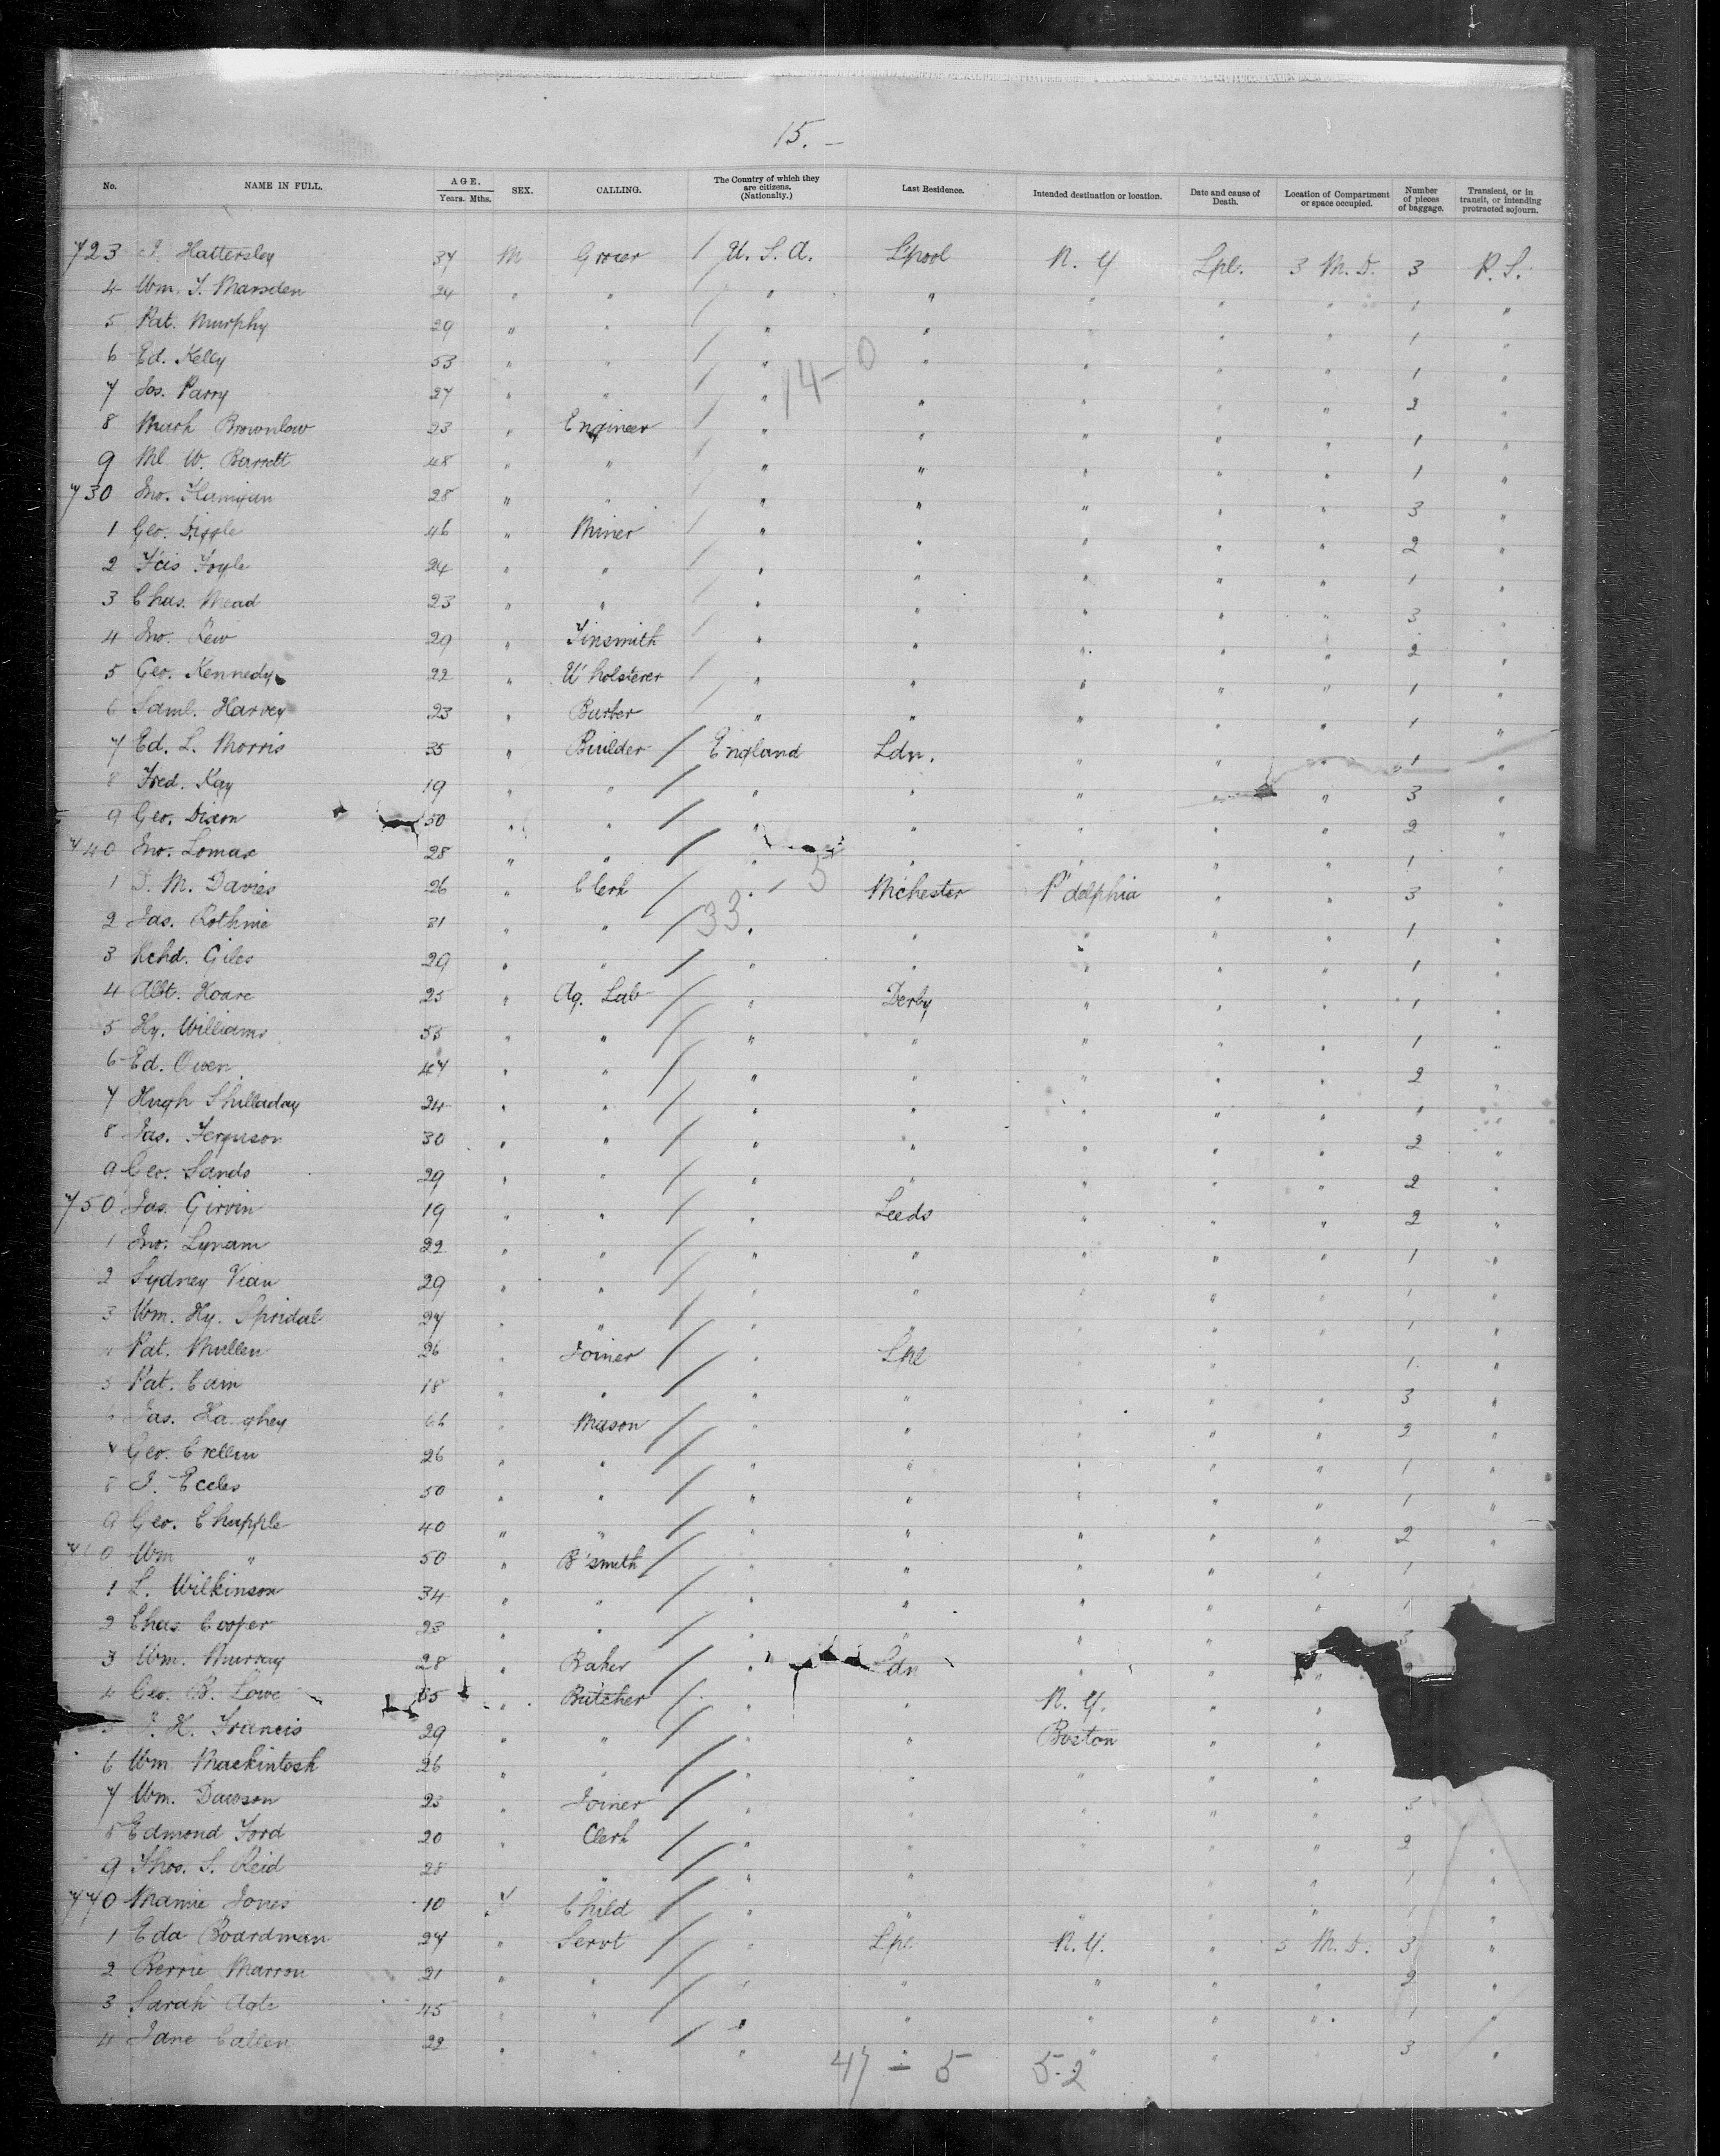 15. –
No. NAME IN FULL. AGE. Years. Mths. SEX. CALLING. The Country of which they are citizens. (Nationalty.) Last Residence. Intended destination or location. Date and cause of Death. Location of Compartment or space occupied. Number of pieces of baggage. Transient, or in transit, or intending protracted sojourn.
723 Hattersley 37 M Grocer / U. S. A. L'pool N. Y Lpl. 3 M. D. 3 P. S.
4 Wm. T. Marsden 24 " " / " " " " " 1 "
5 Pat. Murphy 29 " " / " " " " " 1 "
6 Ed. Kelly 53 " " / " " " " " 1 "
14 – 0
7 Jos. Parry 27 " " / " " " " " 2 "
8 Mark Brownlow 23 " Engineer / " " " " " 1 "
9 Ml. W. Barrett 48 " " / " " " " " 1 "
730 Jno. 28 " " / " " " " " 3 "
1 Geo. Diggle 46 " Miner / " " " " " 2 "
2 F'cis Foyle 24 " " / " " " " " 1 "
3 Chas. Mead 23 " " / " " " " " 3 "
4 Jno. Kew 29 " Tinsmith / " " " " " 2 "
5 Geo. Kennedy 22 " U'holsterer / " " " " " 1 "
6 Saml. Harvey 23 " Barber / " " " " " 1 "
7 Ed. L. Morris 35 " Builder / England Ldn. " " " 1 "
8 Fred. Kay 19 " " / " " " " " 3 "
9 Geo. Dixon 50 " " / " " " " " 2 "
740 Jno. Lomax 28 " " / " " " " " 1 "
1 Davies 26 " Clerk / " M'chester P'delphia " " 3 "
33 – 5
2 Jas. Rothnie 31 " " / " " " " " 1 "
3 Rchd. Giles 29 " " / " " " " " 1 "
4 Albt. Hoare 25 " Ag. Lab / " Derby " " " 1 "
5 Hy. Williams 55 " " / " " " " " 1 "
6 Ed. Owen 47 " " / " " " " " 2 "
7 Hugh Shilladay 24 " " / " " " " " 1 "
8 Jas. Ferguson 30 " " / " " " " " 2 "
9 Geo. Sands 29 " " / " " " " " 2 "
750 Jas. Girvin 19 " " / " Leeds " " " 2 "
1 Jno. Lynam 22 " " / " " " " " 1 "
2 Sydney Vian 29 " " / " " " " " 1 "
3 Wm. Hy. Spridal 27 " " / " " " " " 1 "
Pat. Mullen 26 " Joiner / " Lpl " " " 1 "
5 Pat. Cam 18 " " / " " " " " 3 "
6 Jas. 66 " Mason / " " " " " 2 "
7 Geo. Crellin 26 " " / " " " " " 1 "
8 Eccles 50 " " / " " " " " 1 "
9 Geo. Chapple 40 " " / " " " " " 2 "
0 Wm " 50 " B'smith / " " " " " 1 "
1 L. Wilkinson 34 " " / " " " " " 1
2 Chas. Cooper 23 " " / " " " " " 3
3 Wm. Murray 28 " Baker / " Ldn " " "
4 Geo. B. Lowe 35 " Butcher / " " N. Y. " "
5 Francis 29 " " / " " Boston " "
6 Wm Mackintosh 26 " " / " " " " "
7 Wm. Dawson 23 " Joiner / " " " " " 3
8 Edmond Ford 20 " Clerk / " " " " " 2 "
9 Thos. S. Reid 28 " / " " " " " 1 "
770 Mamie Jones 10 F Child / " " " " " 1 "
1 Eda Boardman 27 " Servt / " Lpl N. Y. " 3 M. D. 3 "
2 Marron 21 " " / " " " " " 2 "
3 Sarah 45 " " / " " " " " 1 "
4 Jane Callen 22 " " / " " " " 3 "
47 – 5 52